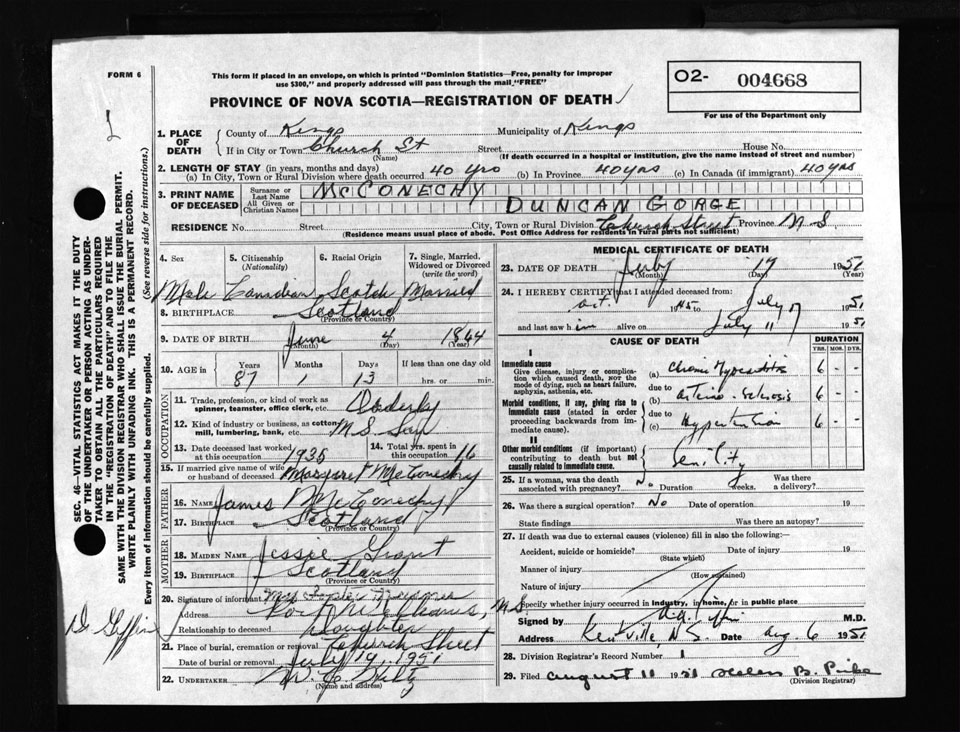 FORM 6
This form if placed in an envelope, on which is printed "Dominion Statistics—Free, penalty for improper
use $300," and properly addressed will pass through the mail "FREE"
O2- 004668
For use of the Department only
PROVINCE OF NOVA SCOTIA—REGISTRATION OF DEATH
1. PLACE OF DEATH County of Kings Municipality of Kings
If in City or Town Church St Street House No.
(Name) (If death occurred in a hospital or institution, give the name instead of street and number)
2. LENGTH OF STAY (in years, months and days)
(a) In City, Town or Rural Division where death occurred 40 yrs (b) In Province 40 yrs (c) In Canada (if immigrant) 40 yrs
3. PRINT NAME OF DECEASED Surname or Last Name McCONECHY
All Given or Christian Names DUNCAN GORGE
RESIDENCE No. Street City, Town or Rural Division Church Street Province N S
(Residence means usual place of abode. Post Office Address for residents in Rural parts not sufficient)
4. Sex 5. Citizenship (Nationality) 6. Racial Origin 7. Single, Married, Widowed or Divorced (write the word)
Male Canadian Scotch Married
8. BIRTHPLACE Scotland
(Province or Country)
9. DATE OF BIRTH June 4 1864
(Month) (Day) (Year)
10. AGE in Years Months Days If less than one day old
87 1 13 hrs. or min.
OCCUPATION
11. Trade, profession, or kind of work as
spinner, teamster, office clerk, etc.
12. Kind of industry or business, as cotton
mill, lumbering, bank, etc.
13. Date deceased last worked at this occupation 1935 14. Total yrs. spent in this occupation 16
15. If married give name of wife or husband of deceased Margaret McConechy
FATHER
16. Name James McConechy
17. Birthplace Scotland
(Province or Country)
MOTHER
18. MAIDEN NAME Jessie Grant
19. BIRTHPLACE Scotland
(Province or Country)
20. Signature of informant Mrs
Address Port Williams, N S
Relationship to deceased Daughter
21. Place of burial, cremation or removal Church Street
Date of burial or removal July 19, 1951
22. UNDERTAKER W
(Name and address)
MEDICAL CERTIFICATE OF DEATH
23. DATE OF DEATH July 17 1951
(Month) (Day) (Year)
24. I HEREBY CERTIFY that I attended deceased from:
Oct. 1945 to July 17 1951
and last saw him alive on July 11 1951
CAUSE OF DEATH DURATION
YRS. MOS. DYS.
I
Immediate cause
Give disease, injury or complication which caused death, NOT the mode of dying, such as heart failure, asphyxia, asthenia, etc.
(a) Chronic Myocarditis 6 - -
due to
Morbid conditions, if any, giving rise to immediate cause (stated in order proceeding backwards from immediate cause).
(b) Arterio-Sclerosis 6 - -
due to
(c) Hypertention 6 - -
II
Other morbid conditions (if important) contributing to death but not causally related to immediate cause.
Senility
25. If a woman, was the death associated with pregnancy? No Duration weeks. Was there a delivery?
26. Was there a surgical operation? No Date of operation 19
State findings Was there an autopsy?
27. If death was due to external causes (violence) fill in also the following:—
Accident, suicide or homicide? Date of injury 19
(State which)
Manner of injury
(How sustained)
Nature of injury
Specify whether injury occurred in Industry, in home, or in public place
Signed by M.D.
Address Kentville, N.S. Date Aug. 6 1951
28. Division Registrar's Record Number 1
29. Filed August 11 1951 Helen B.
(Division Registrar)
SEC. 46—VITAL STATISTICS ACT MAKES IT THE DUTY
OF THE UNDERTAKER OR PERSON ACTING AS UNDERTAKER TO OBTAIN ALL THE PARTICULARS REQUIRED
IN THE "REGISTRATION OF DEATH" AND TO FILE THE
SAME WITH THE DIVISION REGISTRAR WHO SHALL ISSUE THE BURIAL PERMIT.
WRITE PLAINLY WITH UNFADING INK. THIS IS A PERMANENT RECORD.
Every item of information should be carefully supplied. (See reverse side for instructions.)